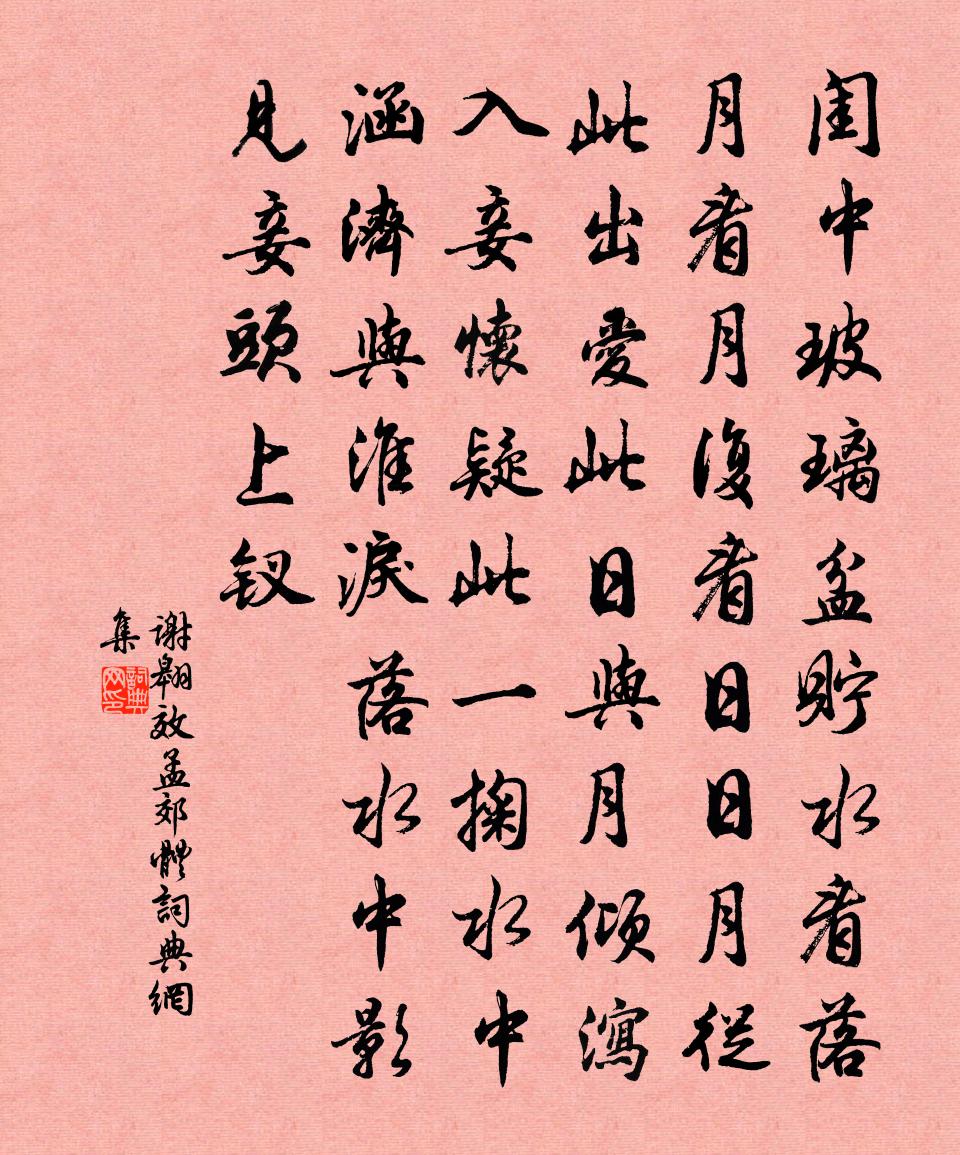 閨中玻璃盆貯水看落
月看月復看日日月從
此出愛此日與月傾瀉
入妾懷疑此一掬水中
涵濟與淮淚落水中影
見妾頭上釵
謝翱效孟郊體詞典網
集
詞典网印